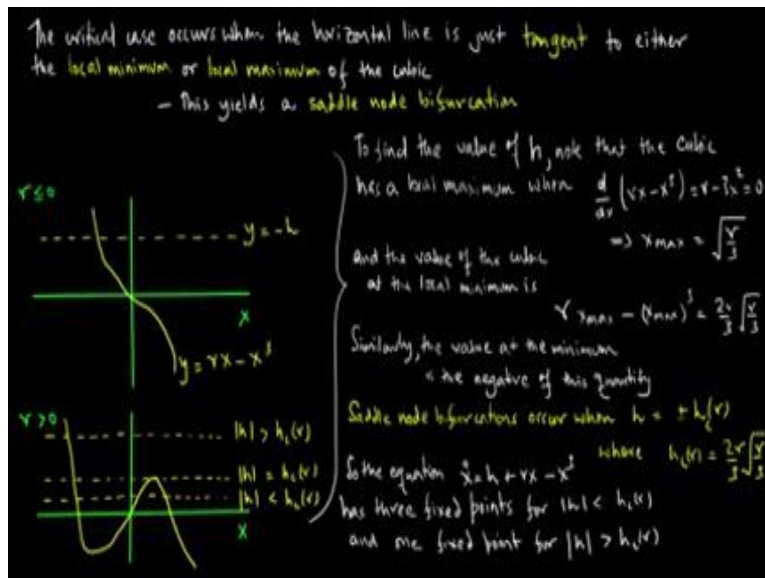 The critical case occurs when the horizontal line is just tangent to either
the local minimum or local maximum of the cubic
– This yields a saddle node bifurcation
r≤0
y = -h
x
y = rx - x³
r>0
|h| > h_c(r)
|h| = h_c(r)
|h| < h_c(r)
x
To find the value of h, note that the cubic
has a local maximum when d/dx (rx - x³) = r - 3x² = 0
⇒ x_max = √(r/3)
and the value of the cubic
at the local minimum is
r x_max - (x_max)³ = 2r/3 √(r/3)
Similarly, the value at the minimum
is the negative of this quantity
Saddle node bifurcations occur when h = ± h_c(r)
where h_c(r) = 2r/3 √(r/3)
So the equation ẋ = h + rx - x³
has three fixed points for |h| < h_c(r)
and one fixed point for |h| > h_c(r)